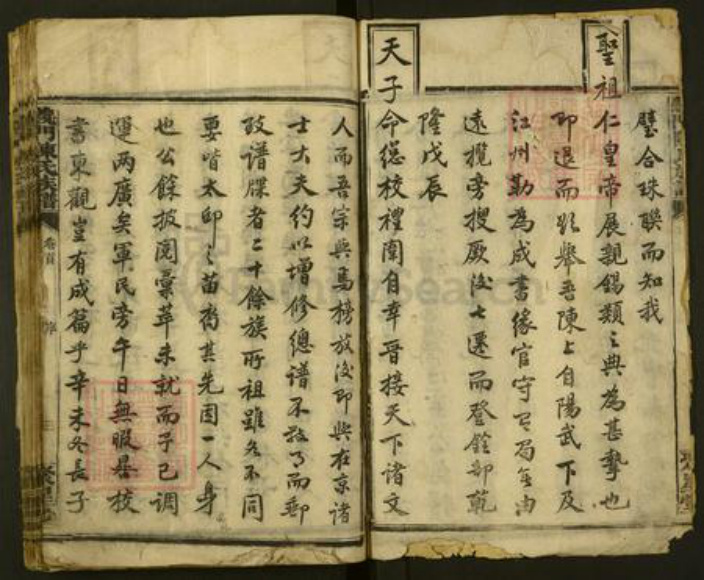 璧合珠聯而知我
聖祖仁皇帝展親錫類之典為甚摯也
即退而欲舉吾陳上自陽武下及
江州勒為成書緣官守有局無由
遠攬旁搜厥後七遷而登銓部乾
隆戊辰
天子命總校禮闈自幸晉接天下諸文
人而吾宗與焉榜放後即與在京諸
士大夫約以增修總譜不數月而郵
致譜牒者二十餘族所祖雖各不同
要皆太邱之苗裔其先固一人身
也公餘披閱彙草未就而予已調
運兩廣矣軍民旁午日無暇晷校
書東觀豈有成篇乎辛未冬長子
義門陳氏族譜 卷首 序 三 聚星堂
FamilySearch